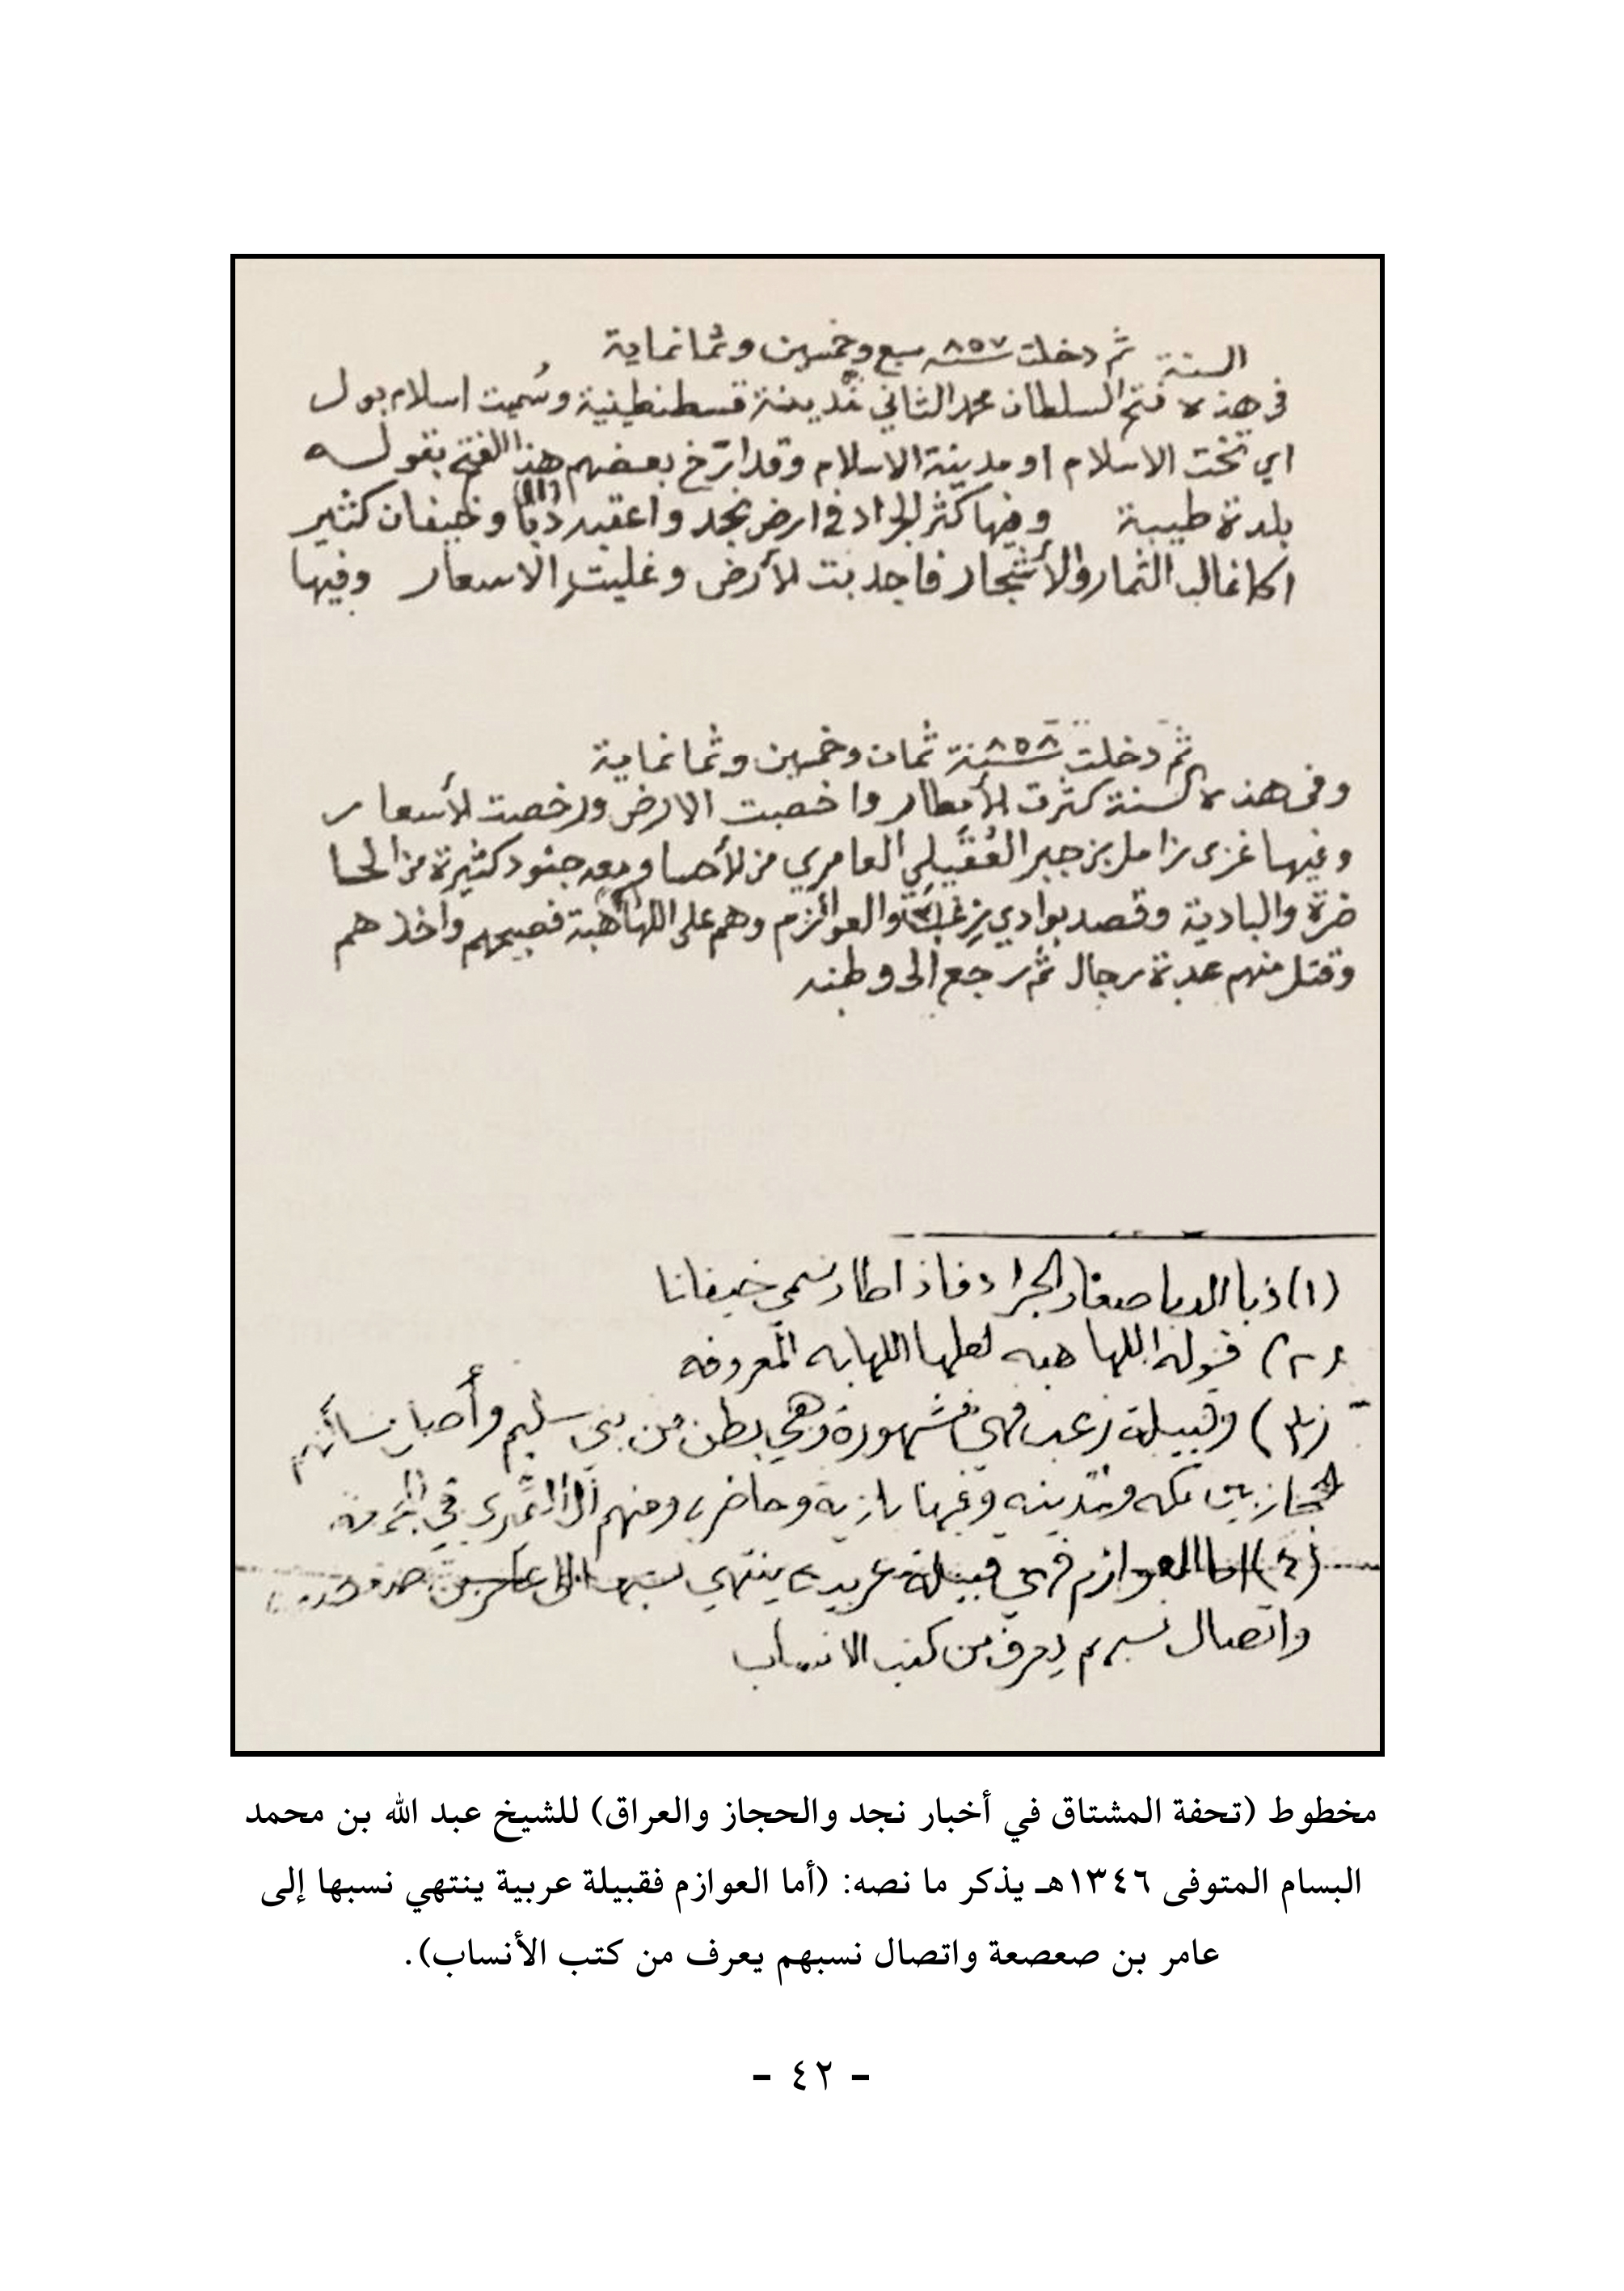 ثم دخلت سنة ٨٥٧ سبع وخمسين وثمانماية
في هذه السنة فتح السلطان محمد الثاني مدينة قسطنطينية وسُميت اسلام بول
اي تخت الاسلام او مدينة الاسلام وقد ارّخ بعضهم هذا الفتح بقوله
بلدة طيبة وفيها كثر الجراد في ارض نجد واعقبه دبا (١) وخيفان كثير
اكل غالب الثمار والأشجار فاجدبت الأرض وغليت الاسعار وفيها
ثم دخلت سنة ٨٥٨ ثمان وخمسين وثمانماية
وفي هذه السنة كثرت الأمطار واخصبت الارض ورخصت الأسعار
وفيها غزى زامل بن جبر العُقَيلي العامري من الأحسا ومعه جنود كثيرة من الحا
ضرة والبادية وقصد بوادي زعب والعوازم وهم على اللهاهبة فصبحهم واخذهم
وقتل منهم عدة رجال ثم رجع الى وطنه
(١) دبا الدبا صغار الجراد فاذا طار سمي خيفانا
(٢) قوله اللهاهبه لعلها اللهابه المعروفه
(٣) وقبيلة زعب فهي مشهورة وهي بطن من بني سليم وأصل مساكنهم
الحجاز بين مكه والمدينه وفيها بادية وحاضره ومنهم في
(٤) اما العوازم فهي قبيلة عربية ينتهي نسبها الى عامر بن صعصعة
واتصال نسبهم يعرف من كتب الانساب
مخطوط (تحفة المشتاق في أخبار نجد والحجاز والعراق) للشيخ عبد الله بن محمد
البسام المتوفى ١٣٤٦هـ يذكر ما نصه: (أما العوازم فقبيلة عربية ينتهي نسبها إلى
عامر بن صعصعة واتصال نسبهم يعرف من كتب الأنساب).
- ٤٢ -